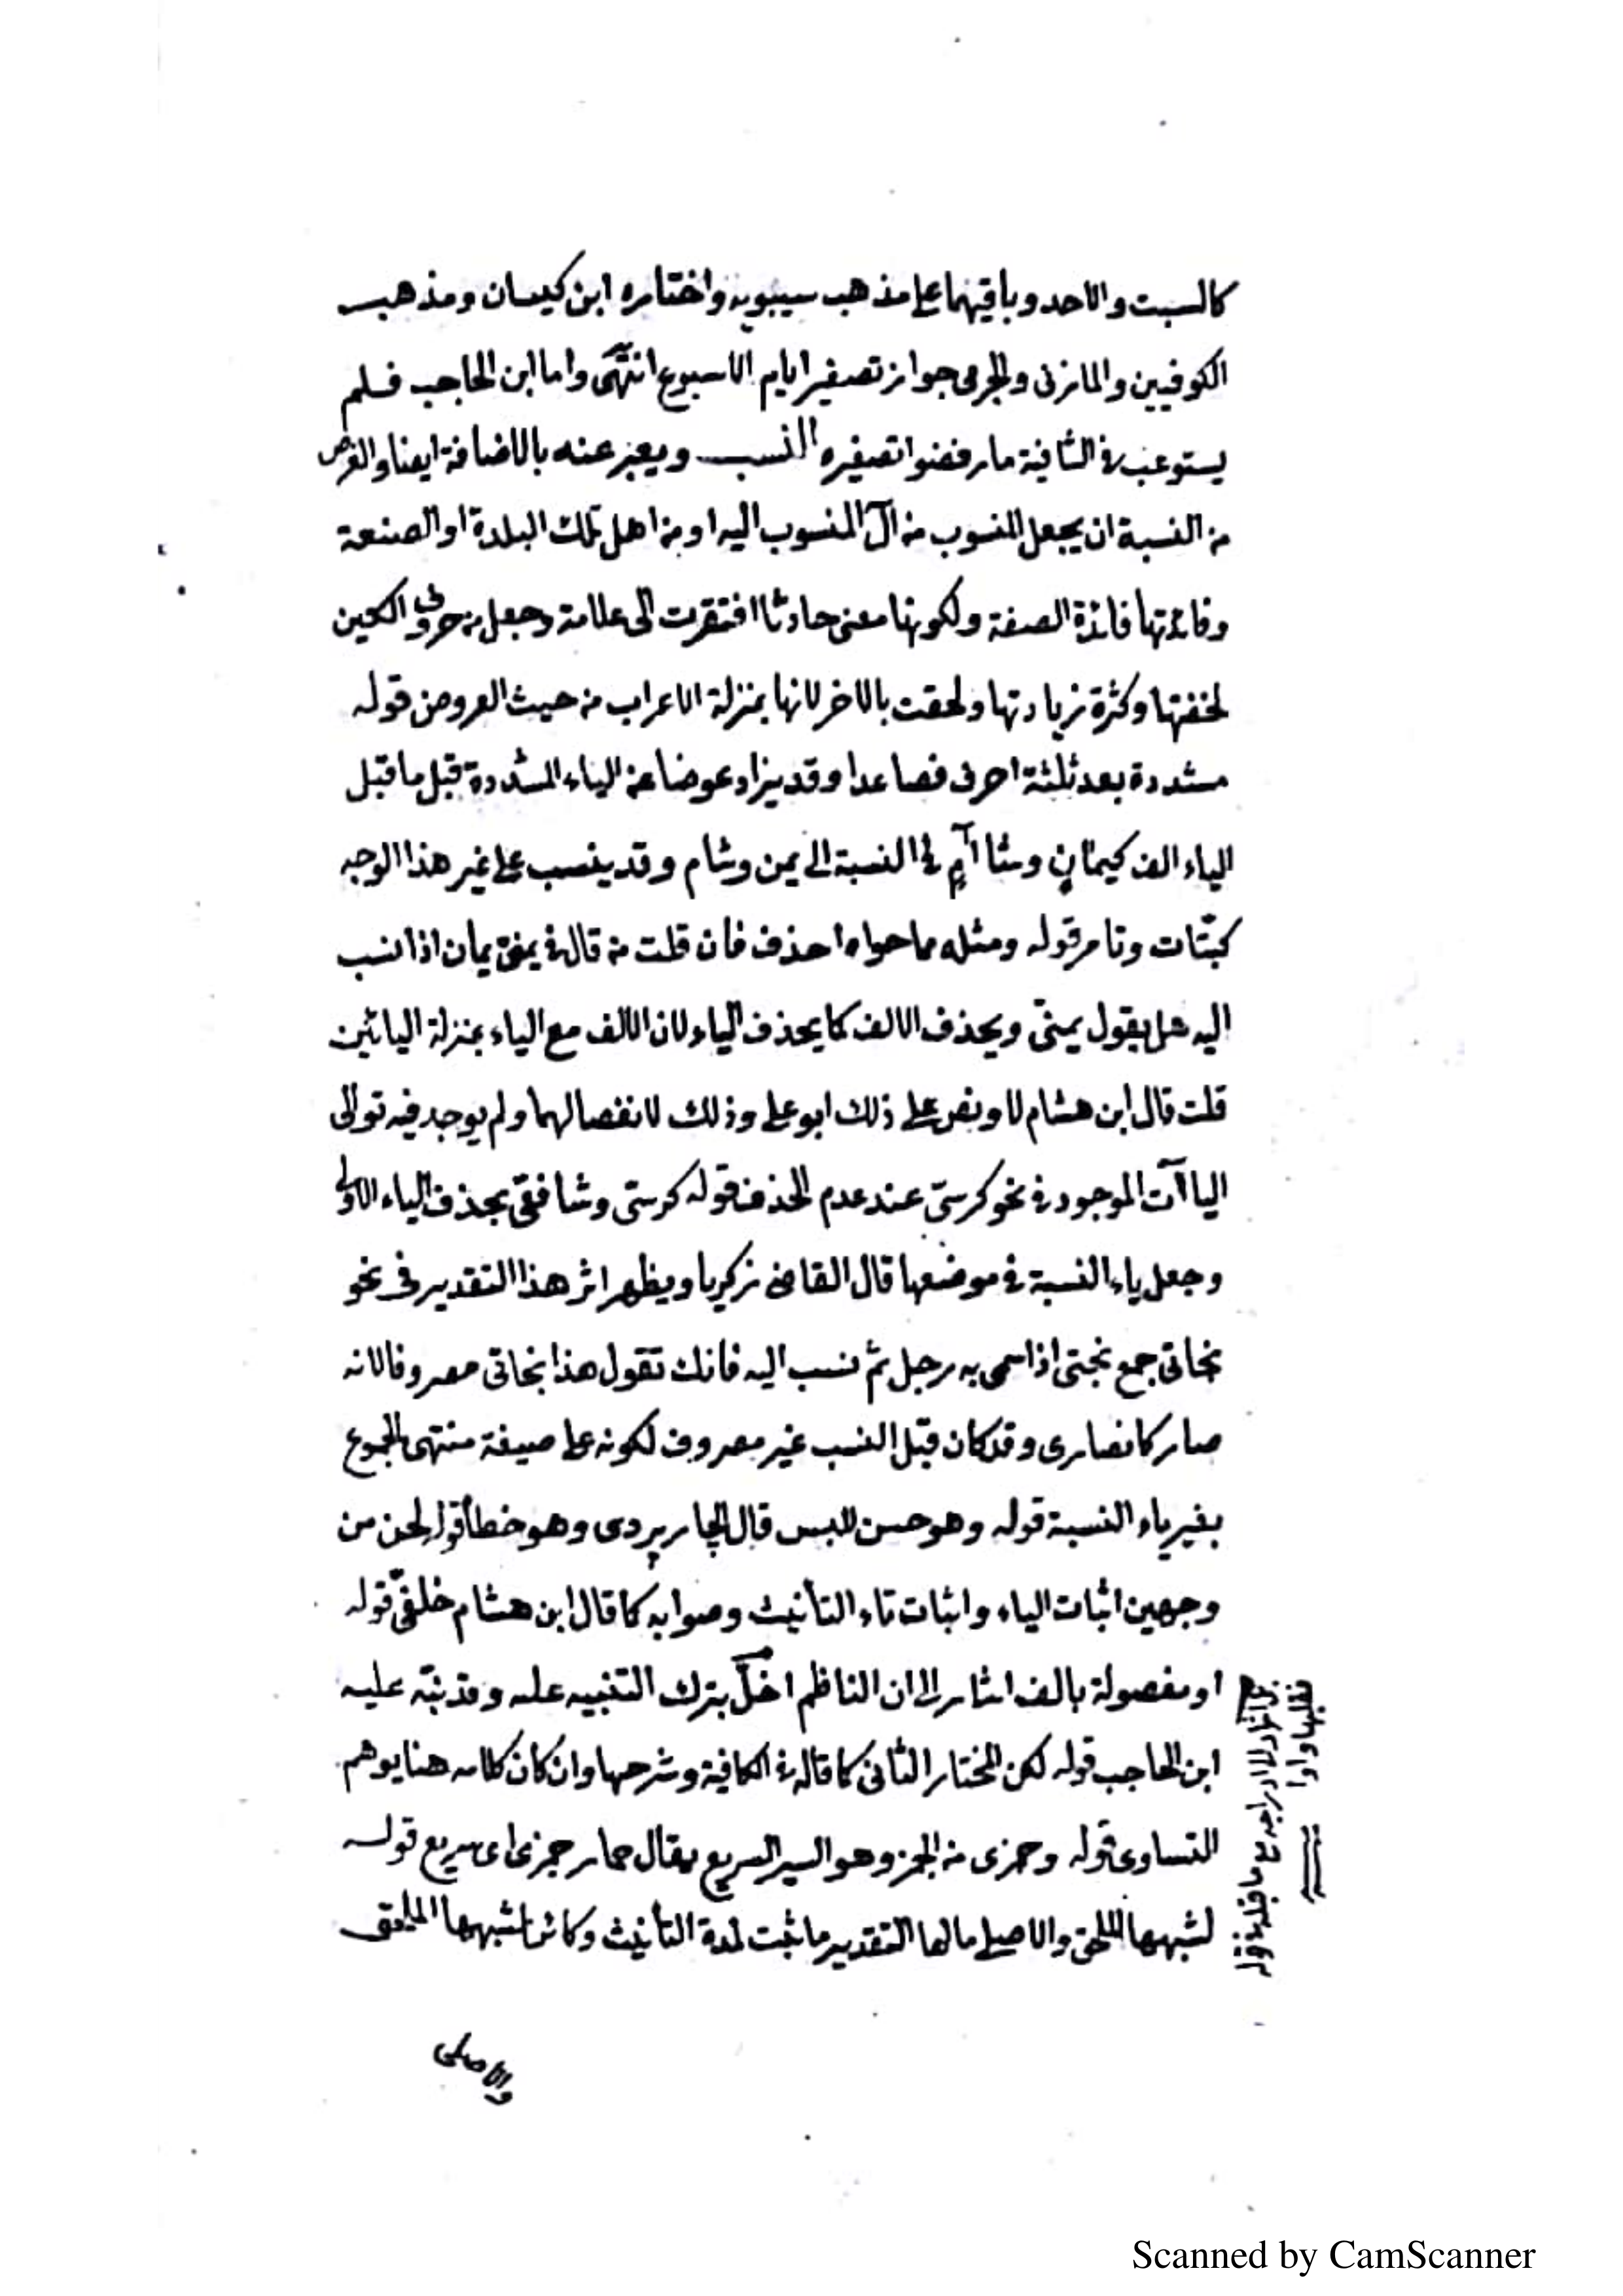 كالسبت والاحد وباقيهما على مذهب سيبويه واختاره ابن كيسان ومذهب
الكوفيين والمازنى والجرمى جواز تصغير ايام الاسبوع انتهى واما ابن الحاجب فلم
يستوعب فى الشافية ما رفضوا تصغيره النسب ويعبر عنه بالاضافة ايضا والغرض
من النسبة ان يجعل المنسوب من آل المنسوب اليه او من اهل تلك البلدة او الصنعة
وفائدتها فائدة الصفة ولكونها معنى حادثا افتقرت الى علامة وجعل من حروف اللين
لخفتها وكثرة زيادتها ولحقت بالاخر لانها بمنزلة الاعراب من حيث العروض قوله
مشددة بعد ثلثة احرف فصاعدا وقد يزاد عوضا عن الياء المشددة قبل ما قبل
الياء الف كيمانٍ وشاآمٍ فى النسبة الى يمن وشام وقد ينسب على غير هذا الوجه
كبتّات وتامر قوله ومثله مما حواه احذف فان قلت من قال فى يمنىّ يمان اذا نسب
اليه هل يقول يمنىّ ويحذف الالف كما يحذف الياء لان الالف مع الياء بمنزلة اليائين
قلت قال ابن هشام لا ونص على ذلك ابو على وذلك لانفصالهما ولم يوجد فيه توالى
الياآت الموجود فى نحو كرسىّ عند عدم الحذف قوله كرسىّ وشافعىّ بحذف الياء الاولى
وجعل ياء النسبة فى موضعها قال القاضى زكريا ويظهر اثر هذا التقدير فى نحو
بخاتى جمع بختى اذا سمى به رجل ثم نسب اليه فانك تقول هذا بخاتى مصروفا لانه
صار كانصارى وقد كان قبل النسب غير مصروف لكونه على صيغة منتهى الجموع
بغير ياء النسبة قوله وهو حسن لليس قال الجاربردى وهو خطأ قوله لحن من
وجهين اثبات الياء واثبات تاء التأنيث وصوابه كما قال ابن هشام خلفىّ قوله
او مفصولة بالف اشار الى ان الناظم اخلّ بترك التنبيه عليه وقد نبّه عليه
ابن الحاجب قوله لكن المختار الثانى كما قاله فى الكافية وشرحها وان كان كلامه هنا يوهم
التساوى قوله وجمزى من الجمز وهو السير السريع يقال حمار جمزى اى سريع قوله
لشبهها الملحق والاصلى مالها التقدير ما ثبت لمدة التأنيث وكائنا لشبهها الملحق
والاصلى
ما قبله قوله
قلبها واوا
Scanned by CamScanner